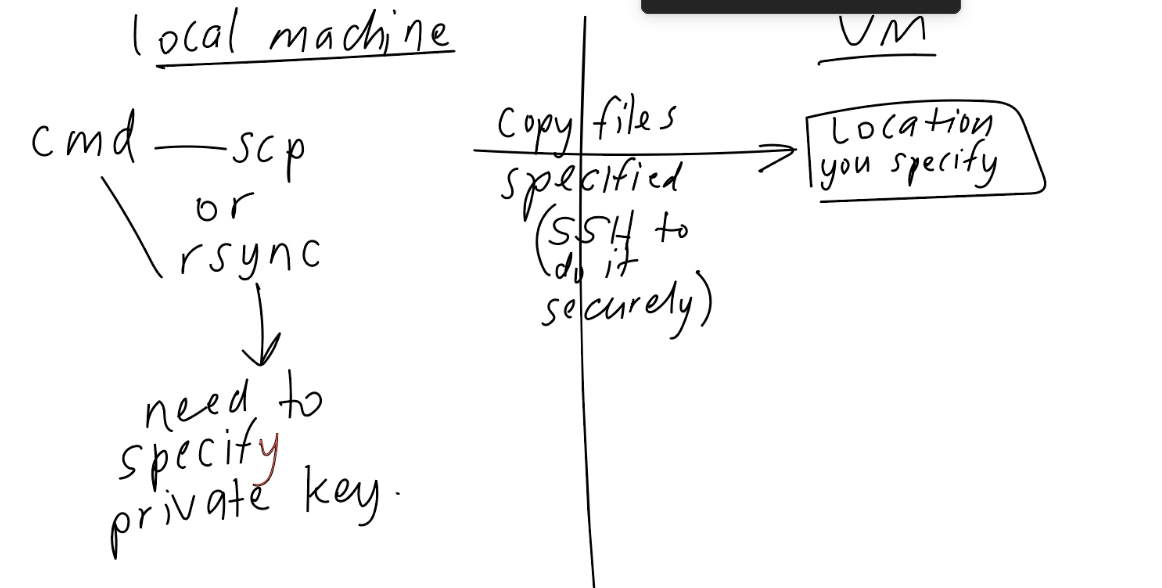 local machine
VM
cmd — scp
or
rsync
need to
specify
private key.
copy files
specified
(SSH to
do it
securely)
Location
you specify